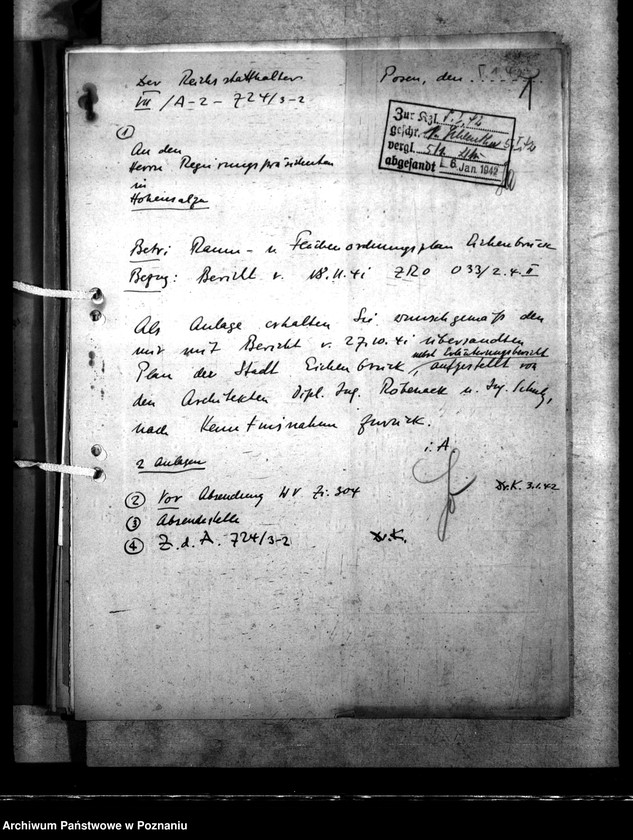 Der Reichsstatthalter
VII /A-2- 724/3-2
Posen, den
Zur Kzl. 5.1.42
geschr.
vergl.
abgesandt 6. Jan. 1942
1
An den
Herrn Regierungspräsidenten
in
Hohensalza
Betr: Raum- u Flächenordnungsplan Eichenbrück
Bezug: Bericht v. 18.11.41 ZRO 033/2.4.II
Als Anlage erhalten Sie wunschgemäß den
mir mit Bericht v. 27.10.41 übersandten
nebst Erläuterungsbericht
Plan der Stadt Eichenbrück, aufgestellt von
den Architekten Dipl. Ing. Robenack u. Ing. Schulz,
nach Kenntnisnahme zurück.
i. A.
2 Anlagen
Dr. K. 3.1.42
2 Vor Absendung WV Zi. 304
3 Absendestelle
4 Z. d. A. 724/3-2
Dr. K.
Archiwum Państwowe w Poznaniu